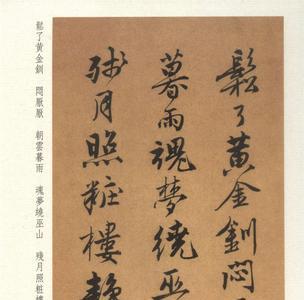 鬆了黃金釧悶
暮雨魂夢繞巫
殘月照粧樓靜
鬆了黃金釧　悶厭厭　朝雲暮雨　魂夢繞巫山　殘月照粧樓